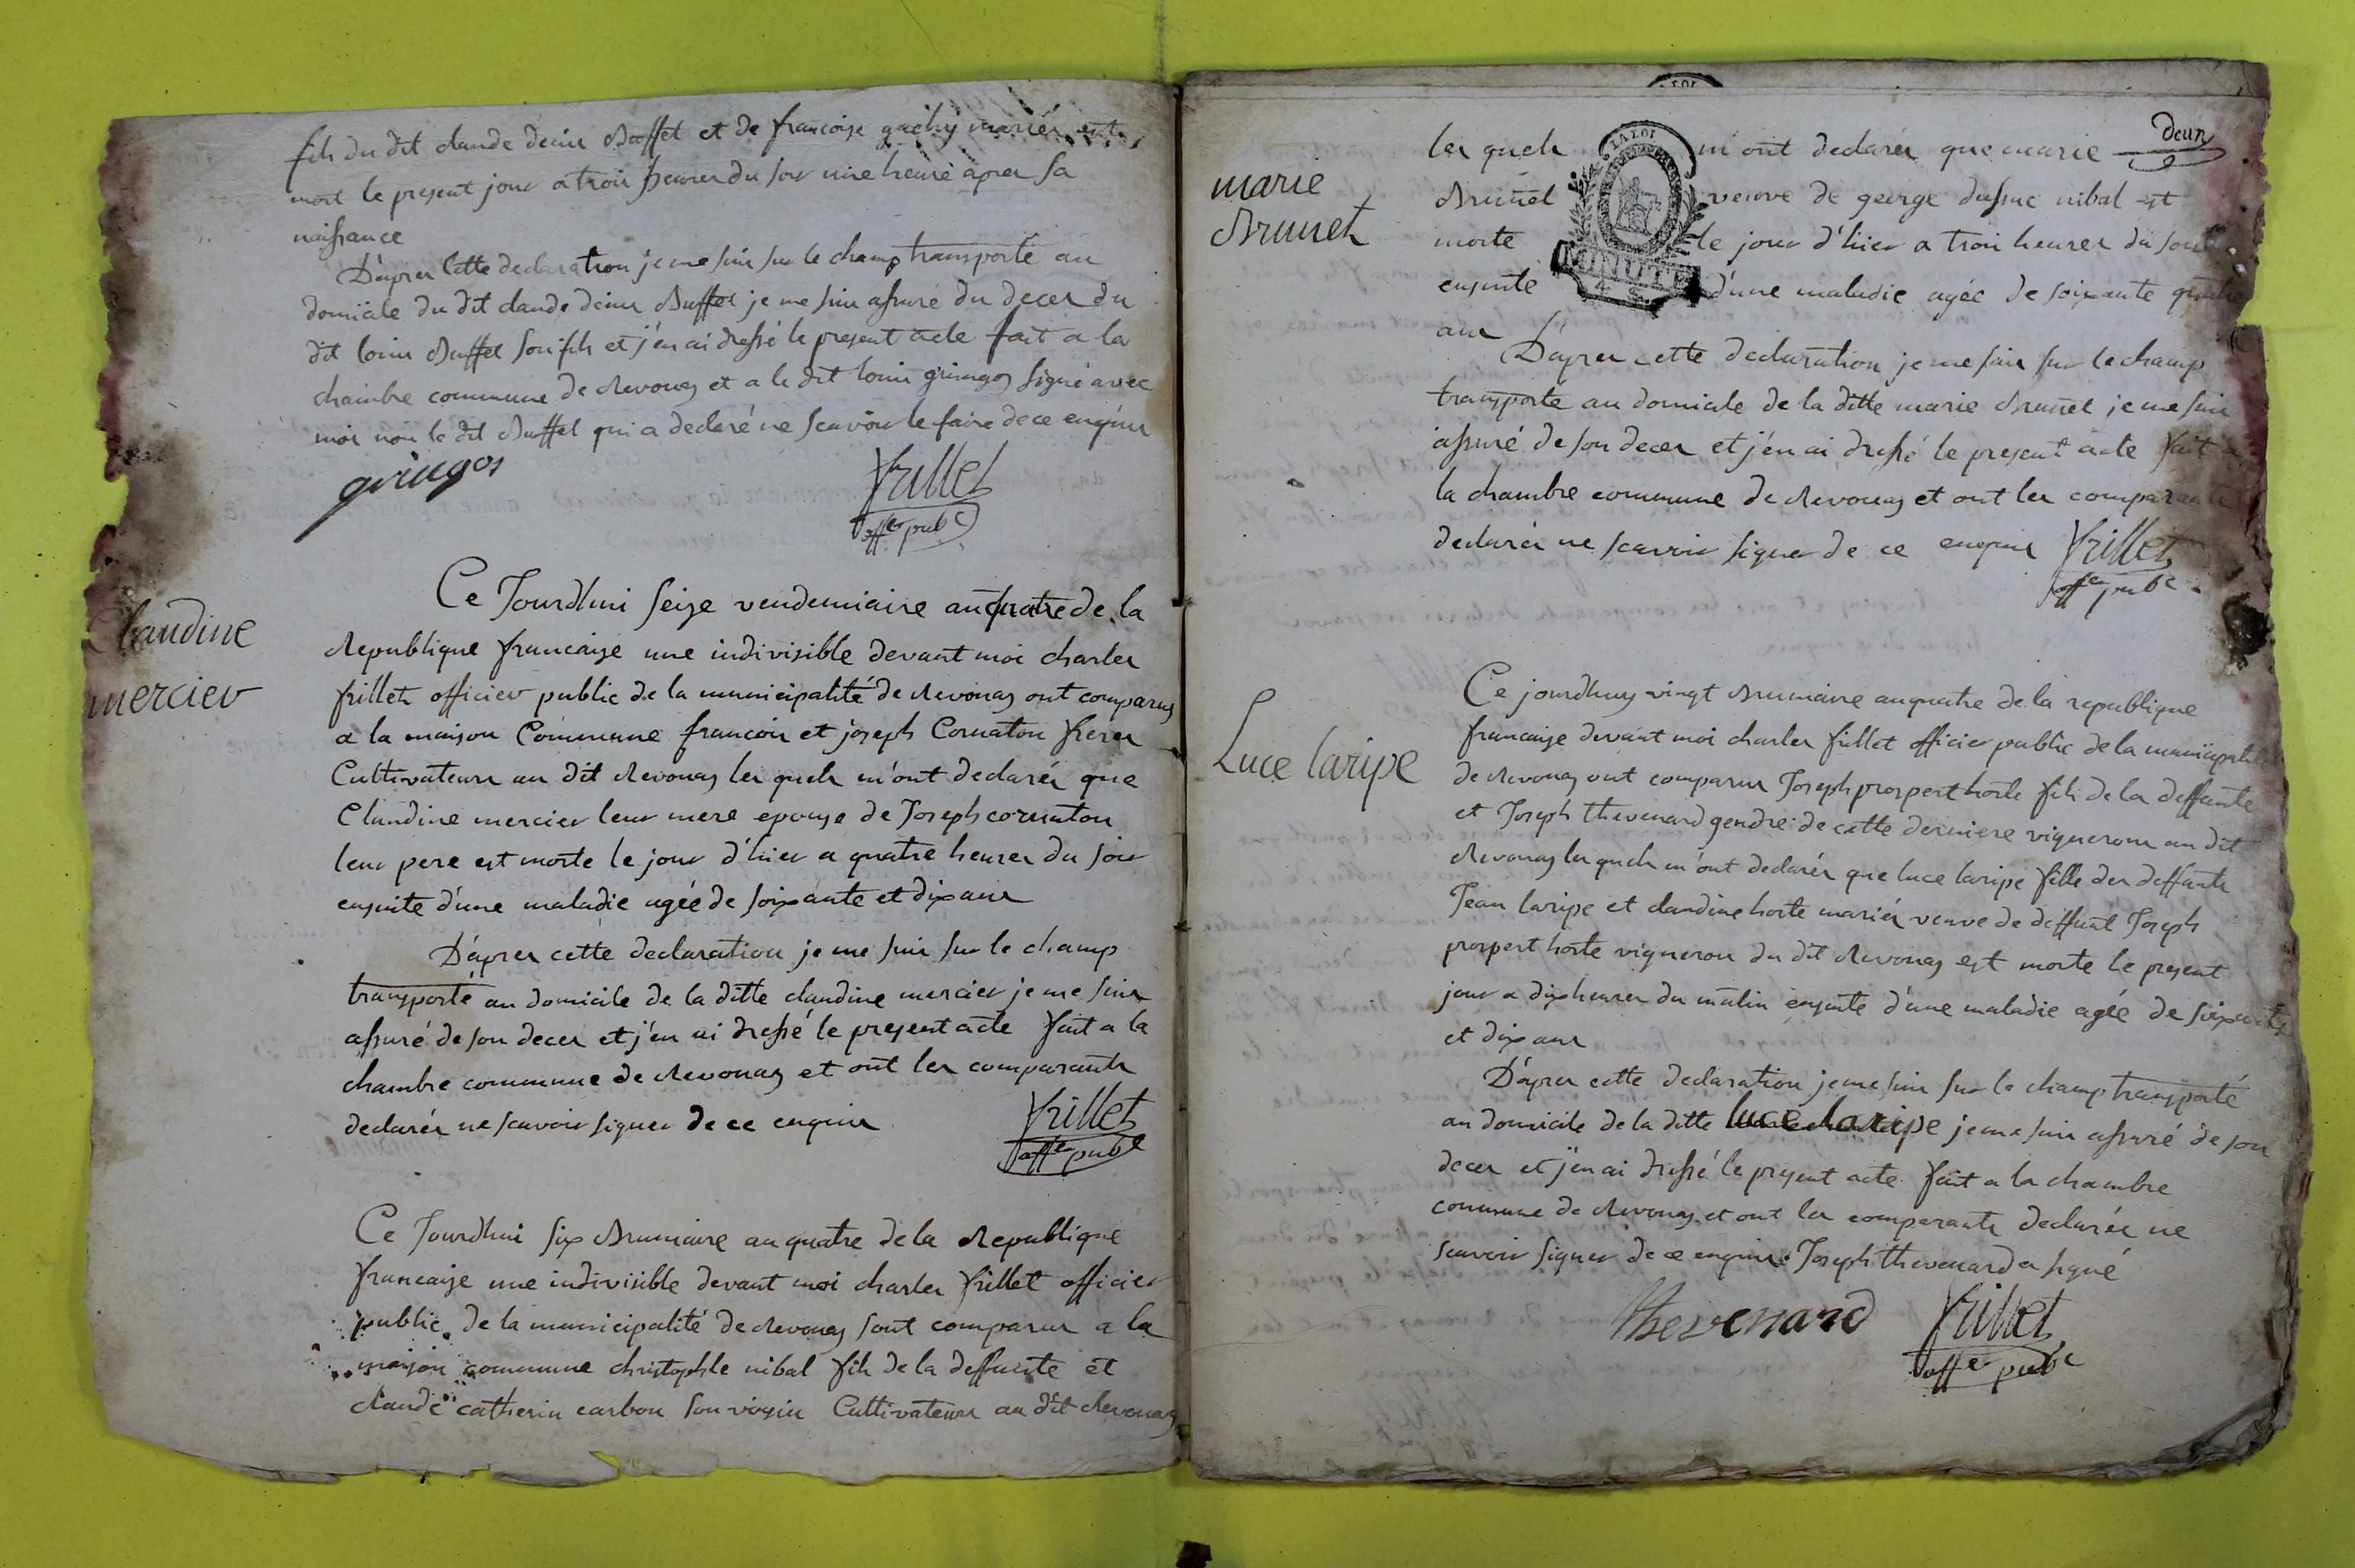 fils du dit claude denis Buffet et de francoise gachy mariés est
mort le present jour a trois heures du soir une heure apres sa
naissance
D'apres cette declaration je me suis sur le champ transporté au
domicile du dit claude denis Buffet je me suis assuré du deces du
dit louis Buffet son fils et j'en ai dressé le present acte fait a la
chambre commune de Revonas et a le dit louis gringos signé avec
moi non le dit Buffet qui a declaré ne scavoir le faire de ce enquis
gringos
frillet
offer pubc
Claudine
mercier
Ce Jourdhui seize vendemiaire an quatre de la
Republique francaise une indivisible devant moi charles
frillet officier public de la municipalité de Revonas ont comparus
a la maison Commune francois et joseph Cornaton freres
Cultivateurs au dit Revonas les quels m'ont declarés que
Claudine mercier leur mere epouse de Joseph cornaton
leur pere est morte le jour d'hier a quatre heures du soir
ensuite d'une maladie agée de soixante et dix ans
D'apres cette declaration je me suis sur le champ
transporté au domicile de la ditte claudine mercier je me suis
assuré de son deces et j'en ai dressé le present acte fait a la
chambre commune de Revonas et ont les comparants
declarés ne scavoir signer de ce enquis
frillet
offer pubc
Ce Jourdhui six Brumaire an quatre de la Republique
francaise une indivisible devant moi charles frillet officier
public de la municipalité de Revonas sont comparus a la
maison commune christophle nibal fils de la deffunte et
claude catherin carbon son voysin Cultivateurs au dit Revonas
deux
marie
Brunet
les quels m'ont declarés que marie
Brunet veuve de george nibal est
morte le jour d'hier a trois heures du soir
ensuite d'une maladie agée de soixante quatre
ans
LA LOI
MINUTE
4 S.
D'apres cette declaration je me suis sur le champ
transporté au domicile de la ditte marie Brunet je me suis
assuré de son deces et j'en ai dressé le present acte fait a
la chambre commune de Revonas et ont les comparants
declarés ne scavoir signer de ce enquis frillet
offer pubc
Luce laripe
Ce jourdhuy vingt Brumaire an quatre de la republique
francaise devant moi charles frillet officier public de la municipalité
de Revonas ont comparus Joseph prospert horte fils de la deffunte
et Joseph thevenard gendre de cette derniere vignerons au dit
Revonas les quels m'ont declarés que luce laripe fille des deffunts
Jean laripe et claudine horte mariés veuve de deffunt Joseph
prospert horte vigneron du dit Revonas est morte le present
jour a dix heures du matin ensuite d'une maladie agée de soixante
et dix ans
D'apres cette declaration je me suis sur le champ transporté
au domicile de la ditte luce laripe je me suis assuré de son
deces et j'en ai dressé le present acte fait a la chambre
commune de Revonas et ont les comparants declarés ne
scavoir signer de ce enquis Joseph thevenard a signé
thevenard frillet
offer pubc